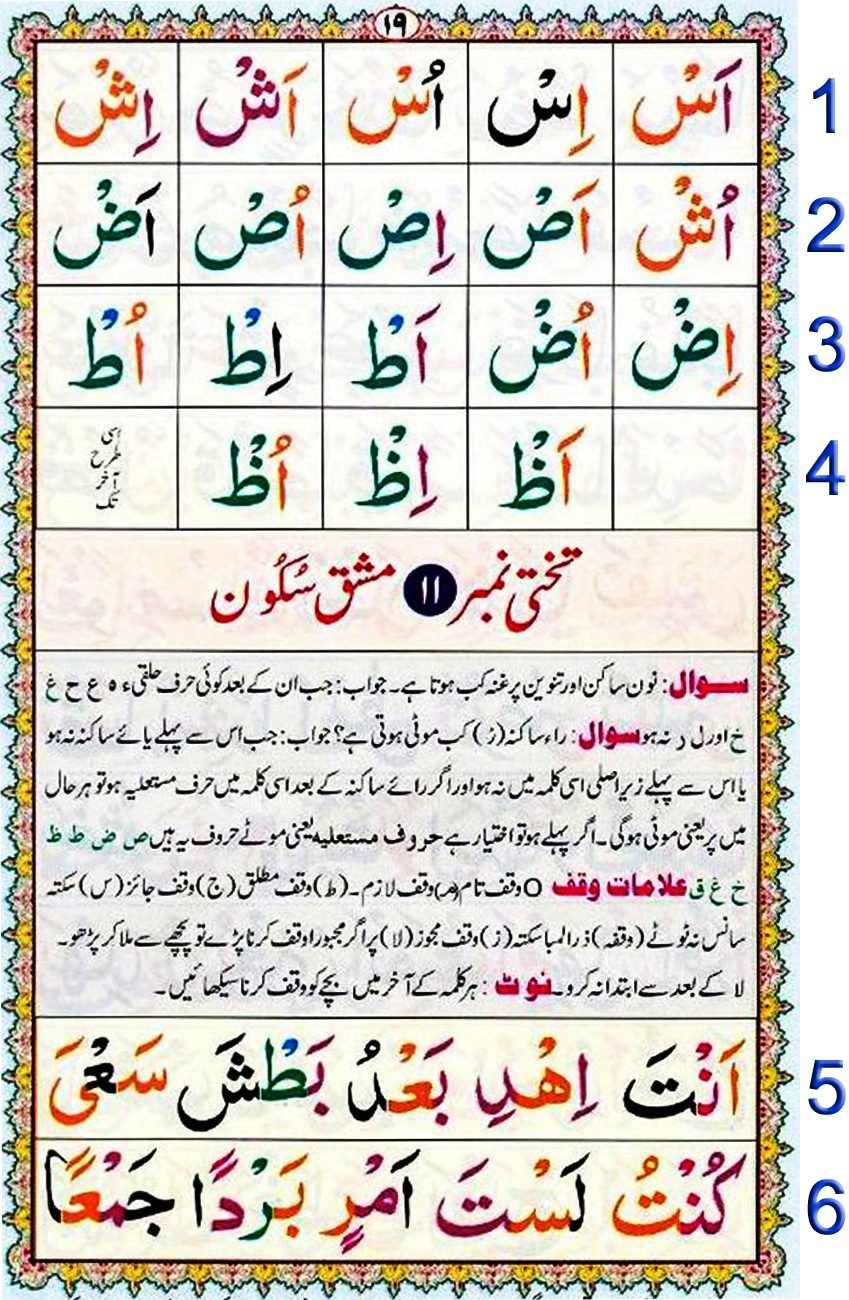 ۱۹
اَسْ اِسْ اُسْ اَشْ اِشْ 1
اُشْ اَصْ اِصْ اُصْ اَضْ 2
اِضْ اُضْ اَطْ اِطْ اُطْ 3
اَظْ اِظْ اُظْ اسی طرح آخر تک 4
تختی نمبر ۱۱ مشق سُکُون
سوال: نون ساکن اور تنوین پر غنہ کب ہوتا ہے۔ جواب: جب ان کے بعد کوئی حرف حلقی ء ہ ع ح غ
خ اور ل ر نہ ہو سوال: راء ساکنہ (رْ) کب موٹی ہوتی ہے؟ جواب: جب اس سے پہلے یائے ساکنہ نہ ہو
یا اس سے پہلے زیر اصلی اسی کلمہ میں نہ ہو اور اگر رائے ساکنہ کے بعد اسی کلمہ میں حرف مستعلیہ ہو تو ہر حال
میں پر یعنی موٹی ہوگی۔ اگر پہلے ہو تو اختیار ہے حروف مستعلیہ یعنی موٹے حروف یہ ہیں ص ض ط ظ
خ غ ق علامات وقف O وقف تام (مـ) وقف لازم۔ (ط) وقف مطلق (ج) وقف جائز (س) سکتہ
سانس نہ ٹوٹے (وقفہ) ذرا لمبا سکتہ (ز) وقف مجوز (لا) پر اگر مجبورا وقف کرنا پڑے تو پیچھے سے ملا کر پڑھو۔
لا کے بعد سے ابتدا نہ کرو۔ نوٹ: ہر کلمہ کے آخر میں بچے کو وقف کرنا سیکھائیں۔
اَنْتَ اِهْدِ بَعْدُ بَطْشَ سَعْیَ 5
كُنْتُ لَسْتَ اَمْرٍ بَرْدًا جَمْعًا 6